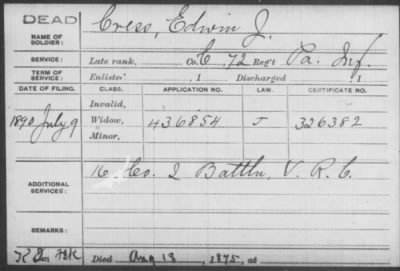 DEAD
NAME OF SOLDIER: Cress, Edwin J.
SERVICE: Late rank, Co. C, 72 Reg't Pa. Inf.
TERM OF SERVICE: Enlisted , 1 Discharged , 1
DATE OF FILING. CLASS. APPLICATION NO. LAW. CERTIFICATE NO.
Invalid,
1890 July 9 Widow, 436854 J 326382
Minor,
ADDITIONAL SERVICES: 16 Co. 2 Battln. V. R. C.
REMARKS:
Died Aug 18, 1875, at